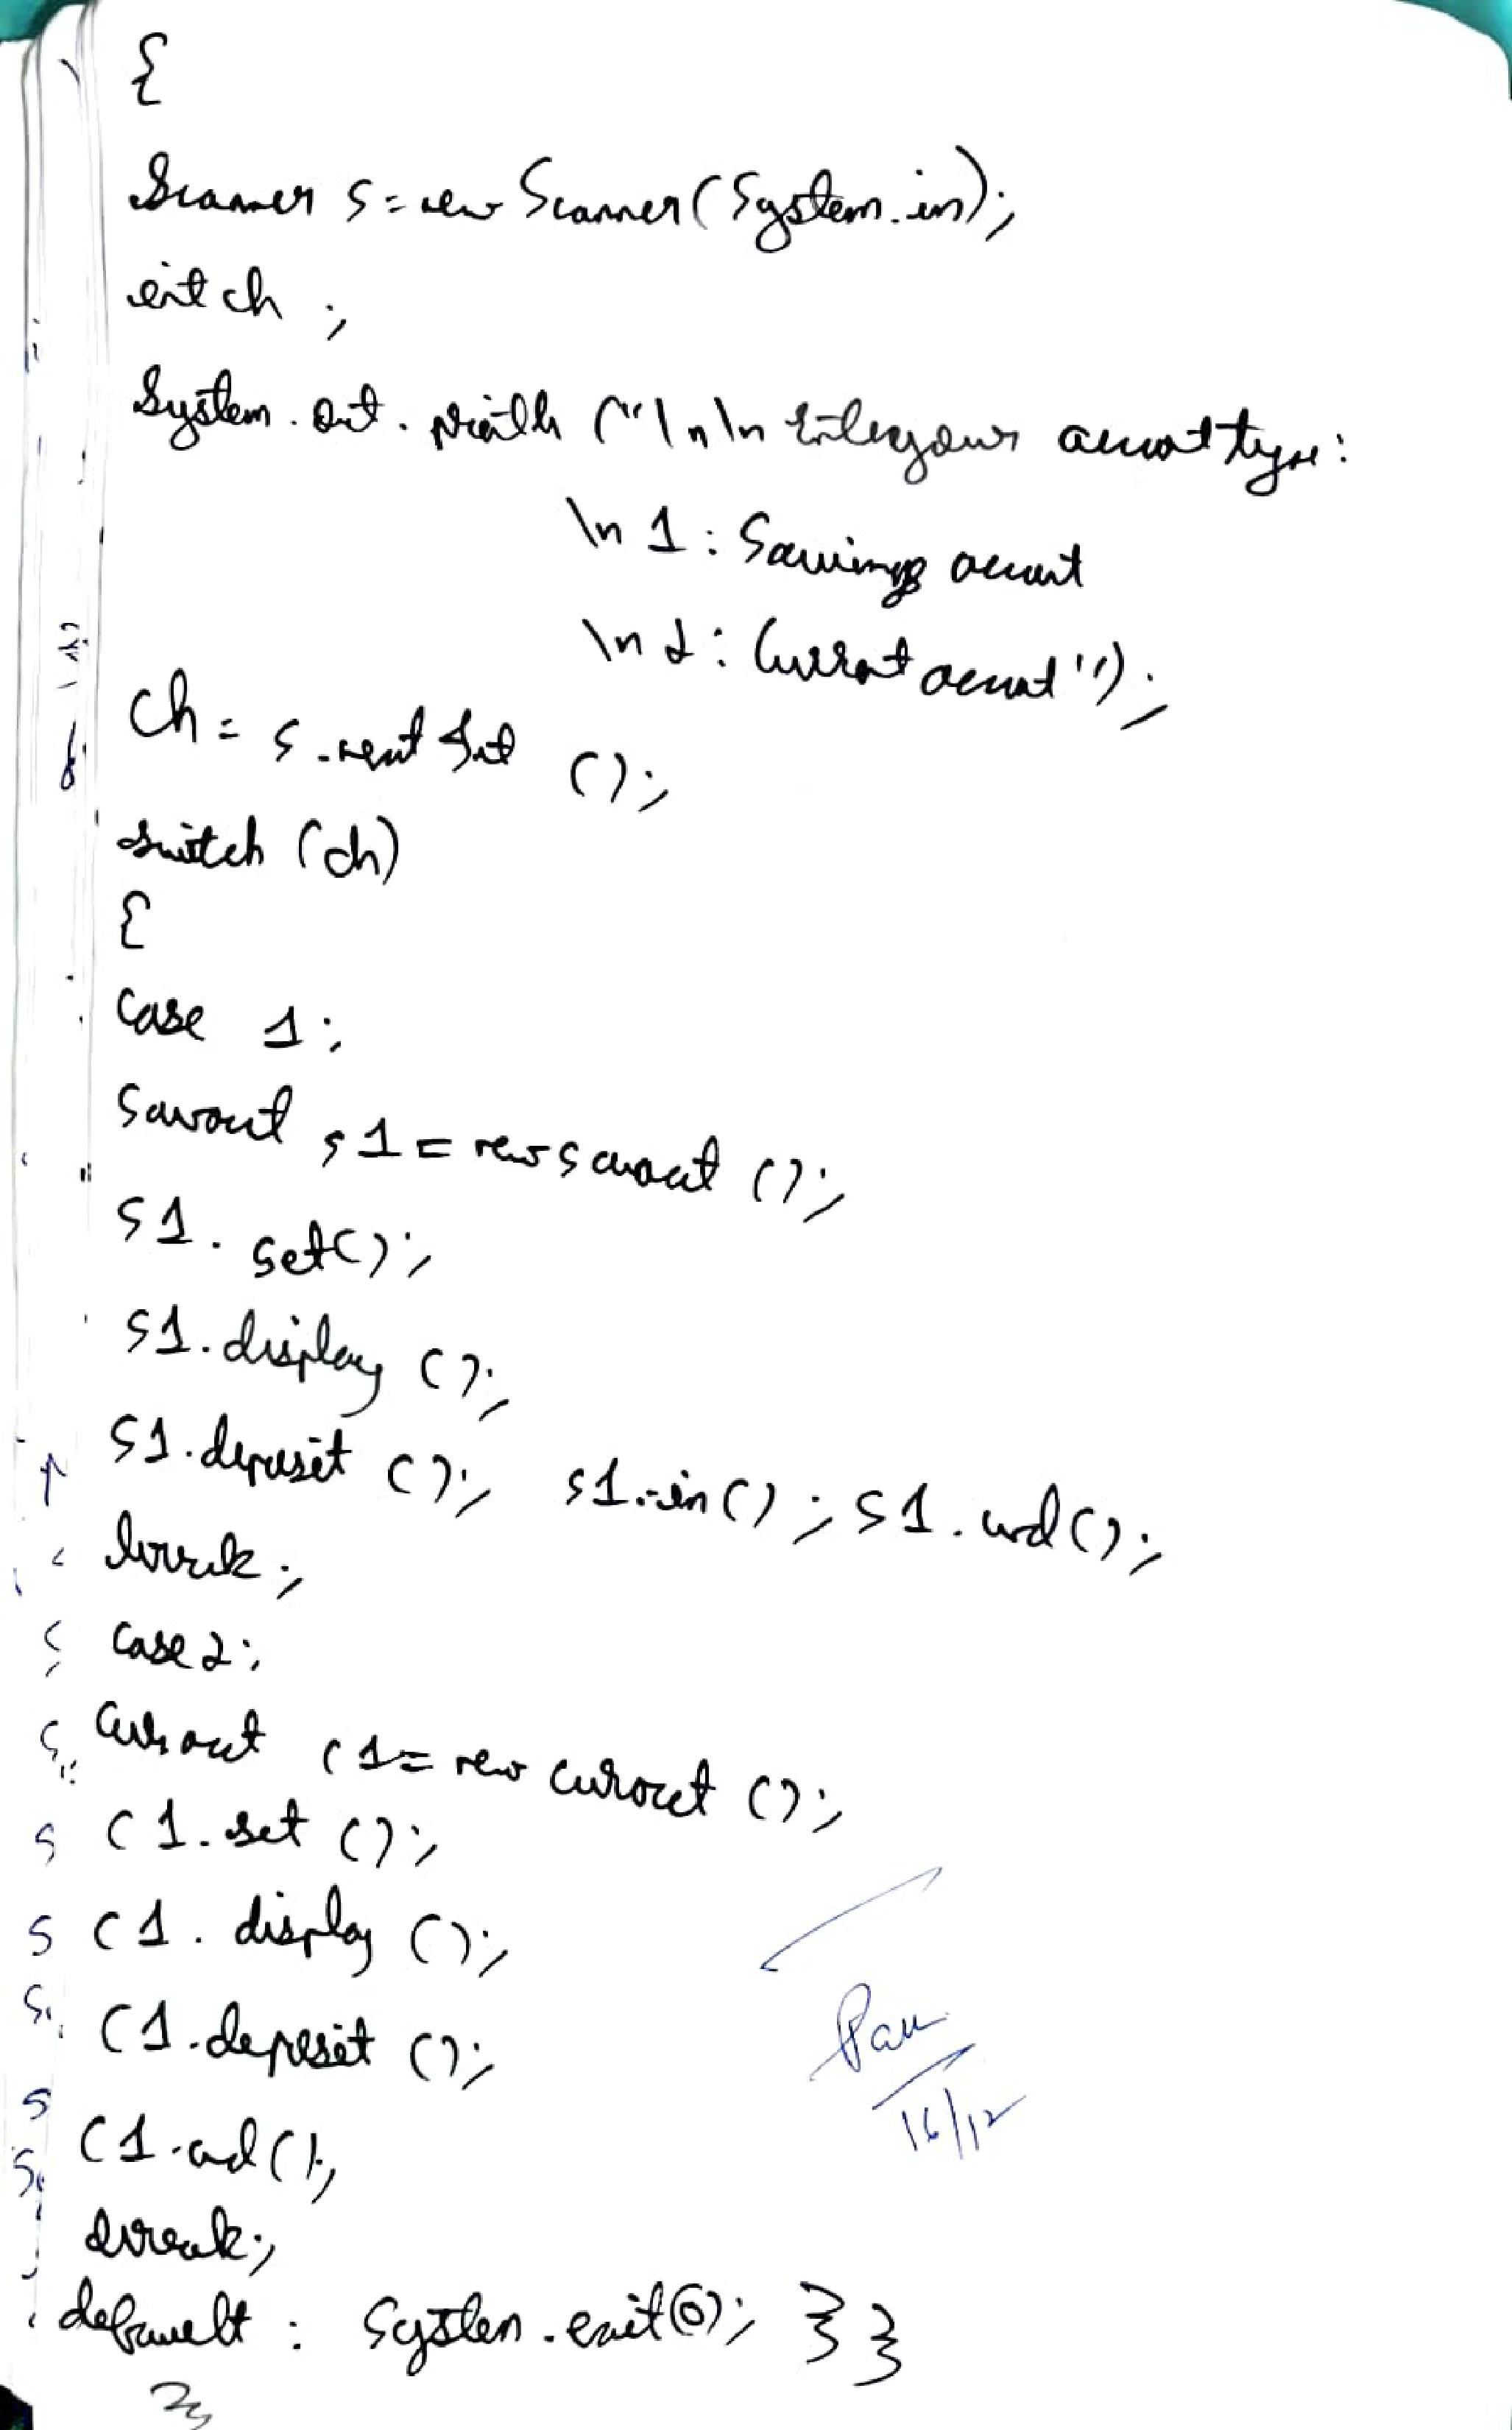 {
Scanner s = new Scanner (System.in);
int ch ;
System.out.println ("\n\n Enter your account type:
\n 1 : Savings account
\n 2 : Current account");
ch = s.next Int ();
switch (ch)
{
case 1 ;
Savacct s1 = new savacct ();
s1. set();
s1.display ();
s1.deposit (); s1.in() ; s1.wd();
break;
case 2;
Curacct c1 = new curacct ();
c1.set ();
c1. display ();
c1.deposit ();
c1.wd();
break;
default : System.exit(0); } }
16/12
}